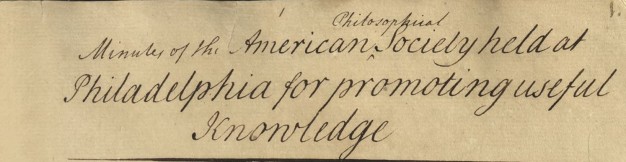 1.
Philosophical
Minutes of the American ^ Society held at
Philadelphia for promoting useful
Knowledge